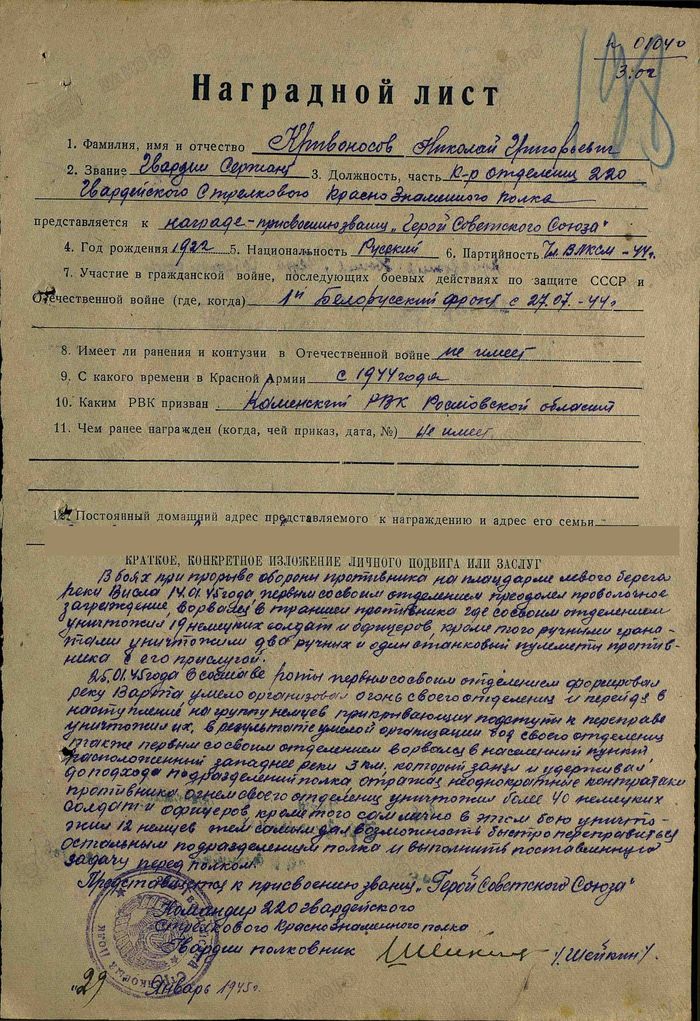 н 01040
3.02
198
Наградной лист
1. Фамилия, имя и отчество Кривоносов Николай Григорьевич
2. Звание Гвардии Сержант 3. Должность, часть К-р отделения 220
Гвардейского Стрелкового Краснознаменного полка
представляется к награде-присвоению званию „Герой Советского Союза"
4. Год рождения 1922 5. Национальность Русский 6. Партийность Чл. ВЛКСМ-44г.
7. Участие в гражданской войне, последующих боевых действиях по защите СССР и
Отечественной войне (где, когда) 1й Белорусский фронт с 27.07.-44г
8. Имеет ли ранения и контузии в Отечественной войне не имеет
9. С какого времени в Красной Армии с 1944 года
10. Каким РВК призван Каменский РВК Ростовской области
11. Чем ранее награжден (когда, чей приказ, дата, №) не имеет
12. Постоянный домашний адрес представляемого к награждению и адрес его семьи
КРАТКОЕ, КОНКРЕТНОЕ ИЗЛОЖЕНИЕ ЛИЧНОГО ПОДВИГА ИЛИ ЗАСЛУГ
В боях при прорыве обороны противника на плацдарме левого берега
реки Висла 14.01.45года первым со своим отделением преодолел проволочное
заграждение, ворвался в траншеи противника где со своим отделением
уничтожил 19 немецких солдат и офицеров, кроме того ручными грана-
тами уничтожили два ручных и один станковый пулеметы против-
ника с его прислугой.
25.01.45года в составе роты первым со своим отделением форсировал
реку Варта умело организовал огонь своего отделения и перейдя в
наступление на группу немцев прикрывающих подступы к переправе
уничтожил их, в результате умелой организации боя своего отделения
также первым со своим отделением ворвался в населенный пункт
расположенный западнее реки 3 км, который занял и удерживал
до подхода подразделений полка отражая неоднократные контратаки
противника огнем своего отделения уничтожил более 40 немецких
солдат и офицеров кроме того сам лично в этом бою уничто-
жил 12 немцев тем самым дал возможность быстро переправиться
остальным подразделениям полка и выполнить поставленную
задачу перед полком.
Представляется к присвоению званию „Герой Советского Союза"
Командир 220 Гвардейского
Стрелкового Краснознаменного полка
Гвардии полковник /Шейкин/.
„29 Январь 1945г.